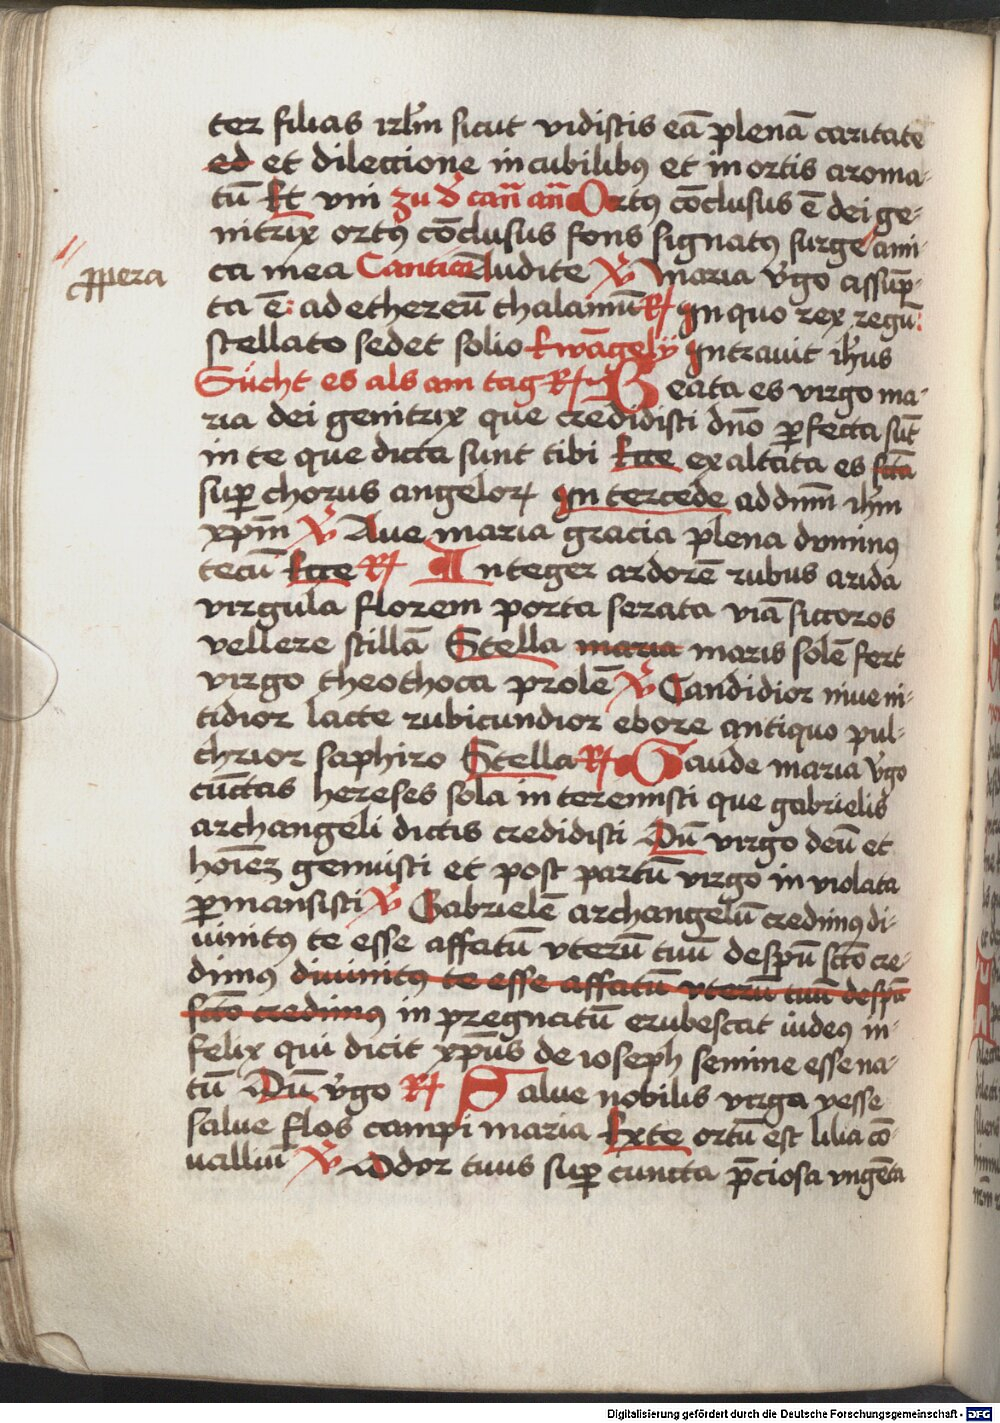 ter filias irlm̄ sicut vidistis eā plenā caritate
ed et dilectione in cubilibꝰ et in ortis aroma-
tū Et vni zu d' cañ añ Ortꝰ cōclusus ē dei ge-
nitrix ortꝰ cōclusus fons signatꝰ surge ami-
ꝓpera
ca mea Cantic Eludite V̄ maria v̓go assūp-
ta ē: ad ethereū thalamū R/ In quo rex regū:
stellato sedet solio Ewāgely Intrauit ih̄us
Sücht es als am tag R/ Beata es virgo ma-
ria dei genitrix que credidisti dn̄o ꝑfecta sūt
in te que dicta sunt tibi Ecce exaltata es sctā
suꝑ chorus angeloꝝ Intercede ad dnm̄ ih̄m
xpm̄ V̄ Aue maria gracia plena dominꝰ
tecū Ecce R/ Integer ardorē rubus arida
virgula florem porta serata viā sic coros
vellere stillā Stella maria maris solē fert
virgo theothoca prolē V̄ Candidior niue ni-
tidior lacte rubicundior ebore antiquo pul-
chrior saphiro Stella R/ Gaude maria v̓go
cūctas hereses sola interemisti que gabrielis
archangeli dictis credidisti Dū virgo deū et
hoīez genuisti et post partū virgo inviolata
ꝑmansisti V̄ Gabrielē archangelū credimꝰ di-
uinitꝰ te esse affatū vterū tuū de spū sctō cre-
dimꝰ diuinitꝰ te esse affatū vterū tuū de spū
sctō credimꝰ inpregnatū erubescat iudeꝰ in-
felix qui dicit xpūs de ioseph semine esse na-
tū Dū v̓go R/ Salue nobilis virga yesse
salue flos campi maria Exte ortū est lilia cō-
ualliū V̄ Odor tuus suꝑ cuncta p̄ciosa vngēta
Digitalisierung gefördert durch die Deutsche Forschungsgemeinschaft - DFG